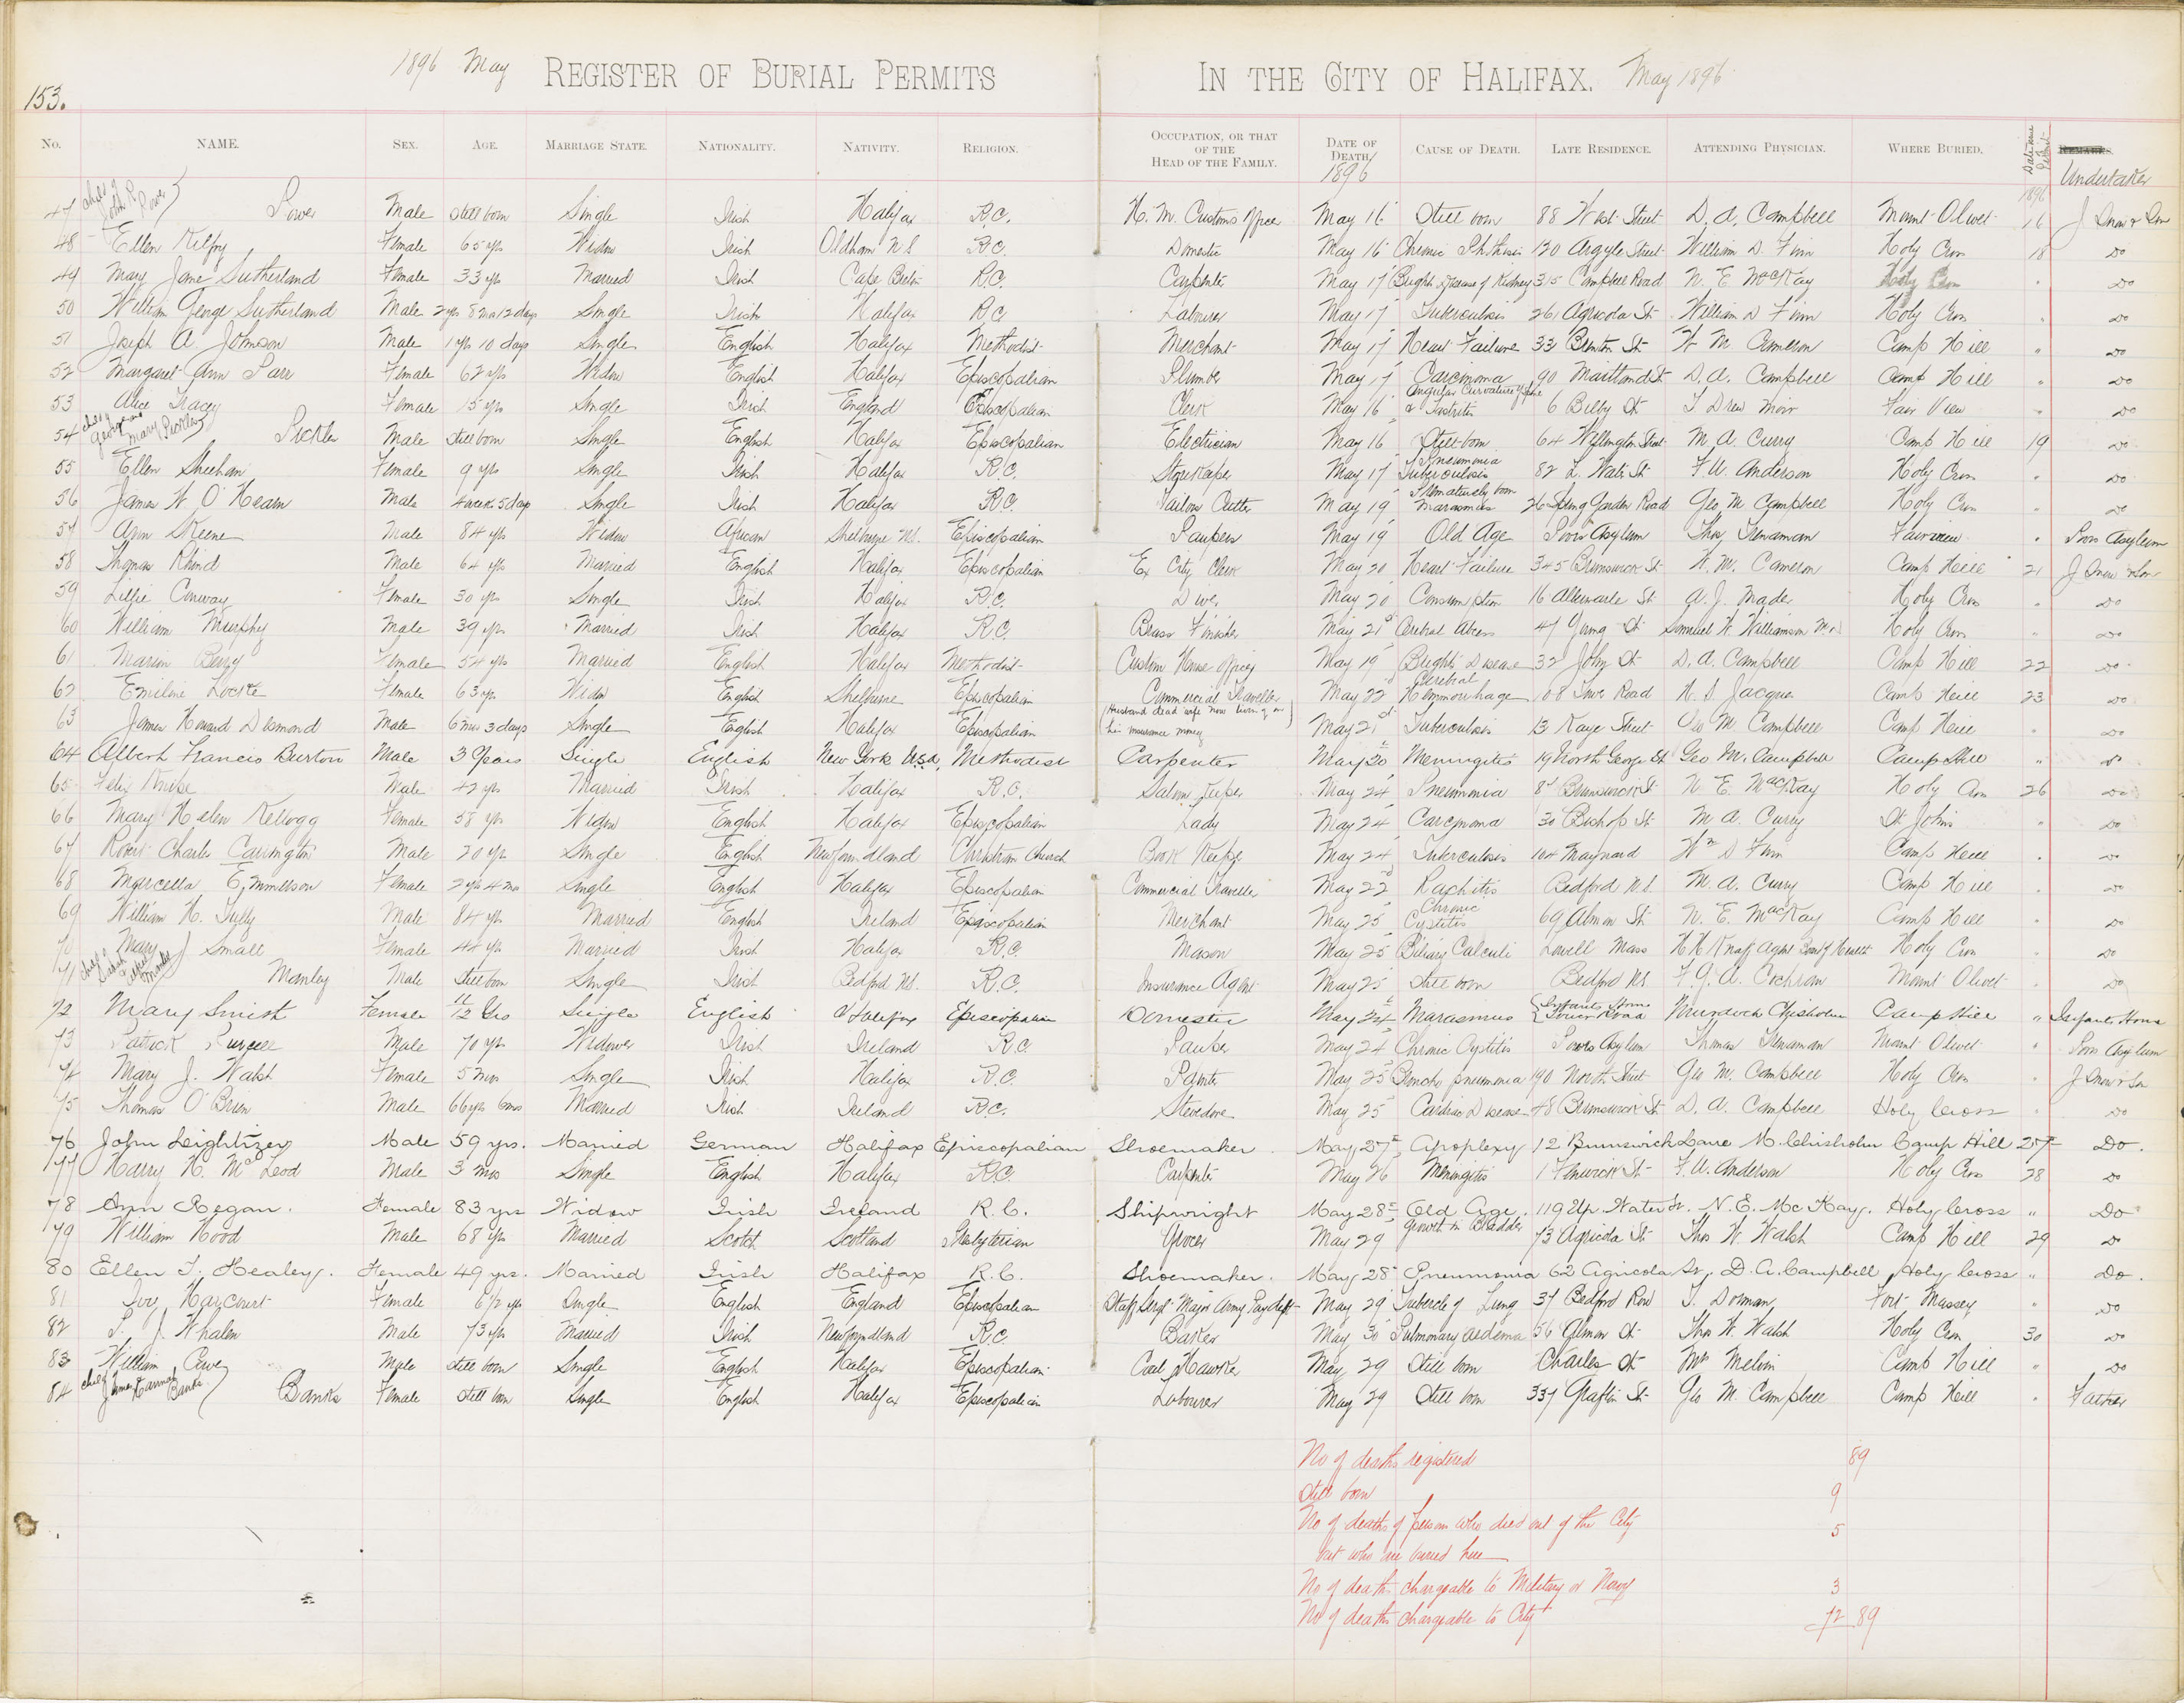 1896 May REGISTER OF BURIAL PERMITS IN THE CITY OF HALIFAX. May 1896
153.
No. NAME. SEX. AGE. MARRIAGE STATE. NATIONALITY. NATIVITY. RELIGION. OCCUPATION, OR THAT OF THE HEAD OF THE FAMILY. DATE OF DEATH. 1896 CAUSE OF DEATH. LATE RESIDENCE. ATTENDING PHYSICIAN. WHERE BURIED. 1896 Undertaker
47 child of John R Power } Power Male Still born Single Irish Halifax R.C. H. M. Customs Officer May 16 Still born 88 West Street D. A. Campbell Mount Olivet 16 J Snow & Son
48 Ellen Female 65 yrs Widow Irish Oldham N S R.C. Domestic May 16 Chronic Phthisis 120 Argyle Street William D Finn Holy Cross 18 Do
49 Mary Jane Sutherland Female 33 yrs Married Irish Cape Breton R.C. Carpenter May 17 Brights Disease of Kidney 315 Campbell Road N. E. MacKay Holy Cross " Do
50 William George Sutherland Male 2 yrs 8 mos 12 days Single Irish Halifax R.C. Labourer May 17 Tuberculosis 261 Agricola St William D Finn Holy Cross " Do
51 Joseph A. Johnson Male 1 yr 10 days Single English Halifax Methodist Merchant May 17 Heart Failure 33 Brenton St W M. Cameron Camp Hill " Do
52 Margaret Ann Parr Female 62 yrs Widow English Halifax Episcopalian Plumber May 17 Carcinoma 90 Maitland St D. A. Campbell Camp Hill " Do
53 Alice Tracey Female 15 yrs Single Irish England Episcopalian Clerk May 16 Angular Curvature of Spine & Gastritis 6 Bilby St T Drew Moir Fair View " Do
54 child of George and Mary Pickles } Pickles Male Still born Single English Halifax Episcopalian Electrician May 16 Still born 64 Wellington Street M. A. Curry Camp Hill 19 Do
55 Ellen Sheehan Female 9 yrs Single Irish Halifax R.C. Storekeeper May 17 Pneumonia Tuberculosis 82 L. Water St F. U. Anderson Holy Cross " Do
56 James W. O'Hearn Male 4 weeks 5 days Single Irish Halifax R.C. Tailors Cutter May 19 Prematurely born Marasmus 26 Spring Garden Road Geo M Campbell Holy Cross " Do
57 Ann Skeene Male 84 yrs Widow African Shelburne N.S. Episcopalian Paupers May 19 Old Age Poors Asylum Thos Trenaman Fairview " Poors Asylum
58 Thomas Rhind Male 64 yrs Married English Halifax Episcopalian Ex City Clerk May 20 Heart Failure 345 Brunswick St W. M. Cameron Camp Hill 21 J Snow & Son
59 Lillie Conway Female 30 yrs Single Irish Halifax R.C. Diver May 20 Consumption 16 Albemarle St A. J. Mader Holy Cross " Do
60 William Murphy Male 39 yrs Married Irish Halifax R.C. Brass Finisher May 21st Cerebral Abcess 47 Young St Samuel W. Williamson M.D Holy Cross " Do
61 Marion Berry Female 54 yrs Married English Halifax Methodist Custom House Officer May 19 Brights Disease 32 John St D. A. Campbell Camp Hill 22 Do
62 Emiline Locke Female 63 yrs Widow English Shelburne Episcopalian Commercial Traveller (Husband dead wife now living on his insurance money) May 22 Cerebral Hemmorrhage 108 Tower Road H. S Jacques Camp Hill 23 Do
63 James Howard Desmond Male 6 mos 3 days Single English Halifax Episcopalian May 21st Tuberculosis 13 Kaye Street Geo M Campbell Camp Hill " Do
64 Albert Francis Burton Male 3 Years Single English New York U.S.A, Methodist Carpenter May 20 Meningitis 19 North George St Geo M. Campbell Camp Hill " Do
65 Felix Male 42 yrs Married Irish Halifax R.C. Saloon Keeper May 24 Pneumonia Brunswick St N E. MacKay Holy Cross 26 Do
66 Mary Helen Kellogg Female 58 yrs Widow English Halifax Episcopalian Lady May 24 Carcinoma 30 Bishop St M A. Curry St John's " Do
67 Robert Charles Carrington Male 20 yrs Single English Newfoundland Christian Church Book Keeper May 24 Tuberculosis 104 Maynard Wm D Finn Camp Hill " Do
68 Marcella E. Emmerson Female 2 yrs 4 mos Single English Halifax Episcopalian Commercial Traveller May 22 Rachitis Bedford N.S. M. A. Curry Camp Hill " Do
69 William H. Tully Male 84 yrs Married English Ireland Episcopalian Merchant May 25 Chronic Cystitis 69 Almon St N. E. MacKay Camp Hill " Do
70 Mary J Small Female 44 yrs Married Irish Halifax R.C. Mason May 25 Biliary Calculi Lowell Mass H H Knapp Agent Board of Health Holy Cross " Do
71 child of Manley Male Still born Single Irish Bedford N.S. R.C. Insurance Agent May 25 Still born Bedford N.S. F. G. A. Cochran Mount Olivet " Do
72 Mary Smith Female 11/12 Yrs Single English Halifax Episcopalian Domestic May 24 Marasmus { Infants Home Tower Road Murdoch Chisholm Camp Hill " Infants Home
73 Patrick Purcell Male 70 yrs Widower Irish Ireland R.C. Pauper May 24 Chronic Cystitis Poors Asylum Thomas Trenaman Mount Olivet " Poors Asylum
74 Mary J. Walsh Female 5 mos Single Irish Halifax R.C. Painter May 25 Broncho pneumonia 190 North Street Geo M. Campbell Holy Cross " J Snow & Son
75 Thomas O'Brien Male 66 yrs 6 mos Married Irish Ireland R.C. Stevedore May 25 Cardiac Disease 48 Brunswick St D. A. Campbell Holy Cross " Do
76 John Leightizer Male 59 yrs. Married German Halifax Episcopalian Shoemaker May 27th Apoplexy 12 Brunswick Lane M. Chisholm Camp Hill 27th Do.
77 Harry H. McLeod Male 3 mos Single English Halifax R.C. Carpenter May 26 Meningitis 1 Fenwick St F. U. Anderson Holy Cross 28 Do
78 Ann Regan. Female 83 yrs Widow Irish Ireland R.C. Shipwright May 28th Old Age. 119 Up. Water St. N. E. McKay. Holy Cross " Do
79 William Hood Male 68 yrs Married Scotch Scotland Presbyterian Grocer May 29 Growth in Bladder 73 Agricola St Thos W. Walsh Camp Hill 29 Do
80 Ellen T. Healey. Female 49 yrs. Married Irish Halifax R.C. Shoemaker. May 28th Pneumonia 62 Agricola St, D. A. Campbell Holy Cross " Do.
81 Ivy Harcourt Female 6 1/2 yrs Single English England Episcopalian Staff Sergt Major Army Pay Dept May 29 Tubercle of Lung 37 Bedford Row T. Dorman Fort Massey " Do
82 J. Whalen Male 73 yrs Married Irish Newfoundland R.C. Baker May 30 Pulmonary Aedema 56 Almon St Thos W. Walsh Holy Cross 30 Do
83 William Cove Male Still born Single English Halifax Episcopalian Coal Hawker May 29 Still born Charles St Mr Melvin Camp Hill " Do
84 child James & Hannah Banks } Banks Female Still born Single English Halifax Episcopalian Labourer May 29 Still born 337 Grafton St Geo M. Campbell Camp Hill " Father
No of deaths registered 89
Still born 9
No of deaths of persons who died out of the City 5
but who are buried here
No of deaths chargeable to Military or Navy 3
No of deaths chargeable to City 72 89